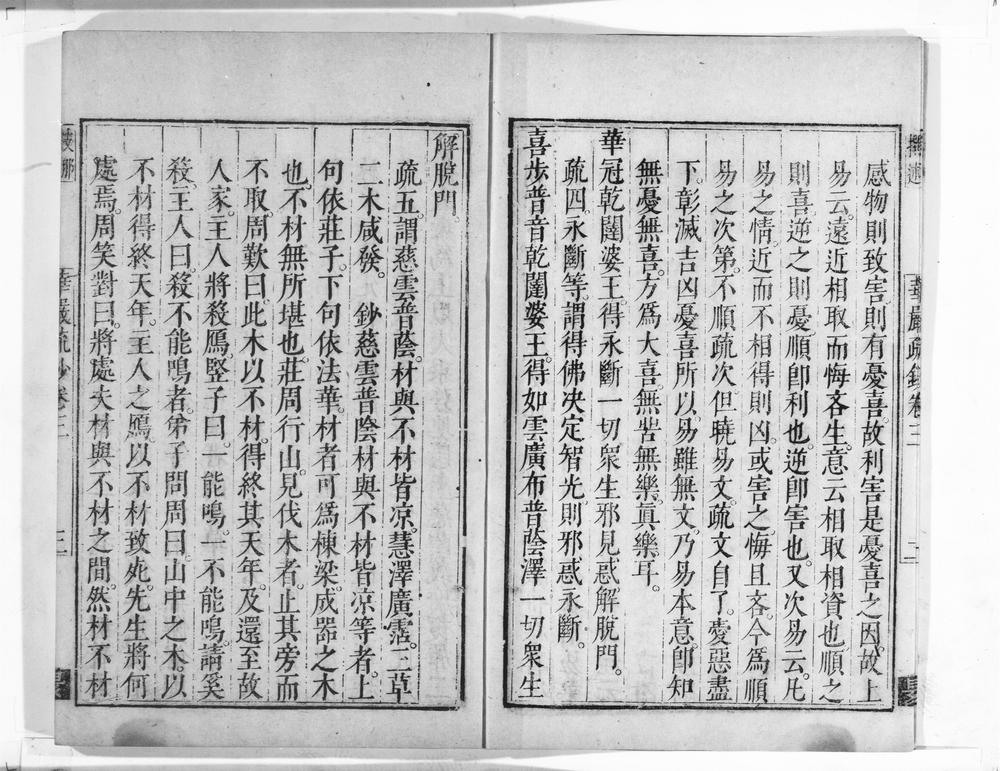 撰述
華嚴疏鈔卷三
二
感物則致害則有憂喜。故利害是憂喜之因。故上
易云。遠近相取而悔吝生。意云相取相資也順之
則喜逆之則憂順卽利也。逆卽害也。又次易云。凡
易之情。近而不相得則凶。或害之。悔且吝。今爲順
易之次第。不順疏次。但曉易文。疏文自了。愛惡盡
下。彰滅吉凶憂喜所以。易雖無文。乃易本意。卽知
無憂無喜。方爲大喜。無苦無樂。眞樂耳。
華冠乾闥婆王。得永斷一切衆生邪見惑解脫門。
疏四。永斷等。謂得佛決定智光。則邪惑永斷。
喜步普音乾闥婆王。得如雲廣布普蔭澤一切衆生
解脫門
疏五。謂慈雲普蔭。材與不材皆凉。慧澤廣霑。二草
二木咸發。 鈔慈雲普陰材與不材皆凉等者。上
句依莊子。下句依法華。材者可爲棟梁。成器之木
也。不材無所堪也。莊周行山。見伐木者。止其旁而
不取。周歎曰。此木以不材得終其天年。及還至故
人家。主人將殺鴈。豎子曰。一能鳴。一不能鳴。請奚
殺。主人曰。殺不能鳴者。弟子問周曰。山中之木以
不材得終天年。主人之鴈。以不材致死。先生將何
處焉。周笑對曰。將處夫材與不材之間。然材不材
華嚴疏鈔卷三
三